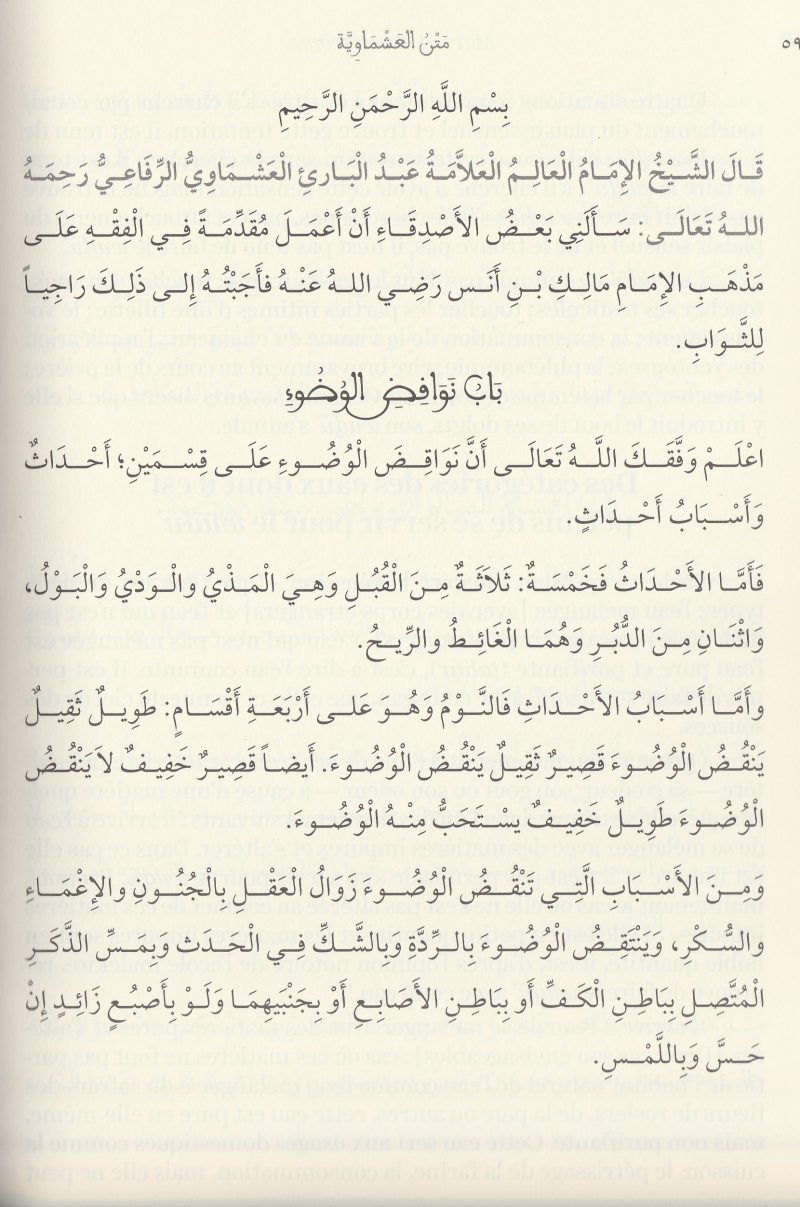 مَتْنُ العَشْمَاوِيَّة
٥٩
بِسْمِ اللَّهِ الرَّحْمَنِ الرَّحِيمِ
قَالَ الشَّيْخُ الإِمَامُ الْعَالِمُ الْعَلاَّمَةُ عَبْدُ الْبَارِئِ الْعَشْمَاوِيُّ الرِّفَاعِيُّ رَحِمَهُ
اللهُ تَعَالَى: سَأَلَنِي بَعْضُ الأَصْدِقَاءِ أَنْ أَعْمَلَ مُقَدِّمَةً فِي الْفِقْهِ عَلَى
مَذْهَبِ الإِمَامِ مَالِكِ بْنِ أَنَسٍ رَضِي اللهُ عَنْهُ فَأَجَبْتُهُ إِلى ذَلِكَ رَاجِياً
لِلثَّوَابِ.
بَابُ نَوَاقِضِ الوُضُوءِ
اعْلَمْ وَفَّقَكَ اللَّهُ تَعَالَى أَنَّ نَوَاقِضَ الْوُضُوءِ عَلَى قِسْمَيْنِ؛ أَحْدَاثٌ
وَأَسْبَابُ أَحْدَاثٍ.
فَأَمَّا الأَحْدَاثُ فَخَمْسَةٌ: ثَلاَثَةٌ مِنَ الْقُبُلِ وَهِيَ الْمَذْيُ والْوَدْيُ وَالْبَوْلُ،
وَاثْنَانِ مِنَ الدُّبُرِ وَهُمَا الْغَائِطُ والرِّيحُ.
وأَمَّا أَسْبَابُ الأَحْدَاثِ فَالنَّوْمُ وَهُوَ عَلَى أَرْبَعَةِ أَقْسَامٍ: طَوِيلٌ ثَقِيلٌ
يَنْقُضُ الْوُضُوءَ قَصِيرٌ ثَقِيلٌ يَنْقُضُ الْوُضُوءَ. أَيضاً قَصِيرٌ خَفِيفٌ لاَ يَنْقُضُ
الْوُضُوءَ طَوِيلٌ خَفِيفٌ يسْتَحَبُّ مِنْهُ الْوُضُوءَ.
وَمِنَ الأَسْبَابِ الَّتِي تَنْقُضُ الْوُضُوءَ زَوَالُ العَقْلِ بِالْجُنُونِ والإِغْمَاءِ
والسُّكْرِ، وَيَنْتَقِضُ الْوُضُوءَ بِالرِّدَّةِ وَبِالشَّكِّ فِي الْحَدَثِ وَبِمَسِّ الذَّكَرِ
الْمُتَّصِلِ بِبَاطِنِ الْكَفِّ أَو بِبَاطِنِ الأَصَابِعِ أَوْ بِجَنْبَيهِمَا وَلَوْ بِأَصْبُعٍ زَائِدٍ إِنْ
حَسَّ وَبِاللَّمْسِ.